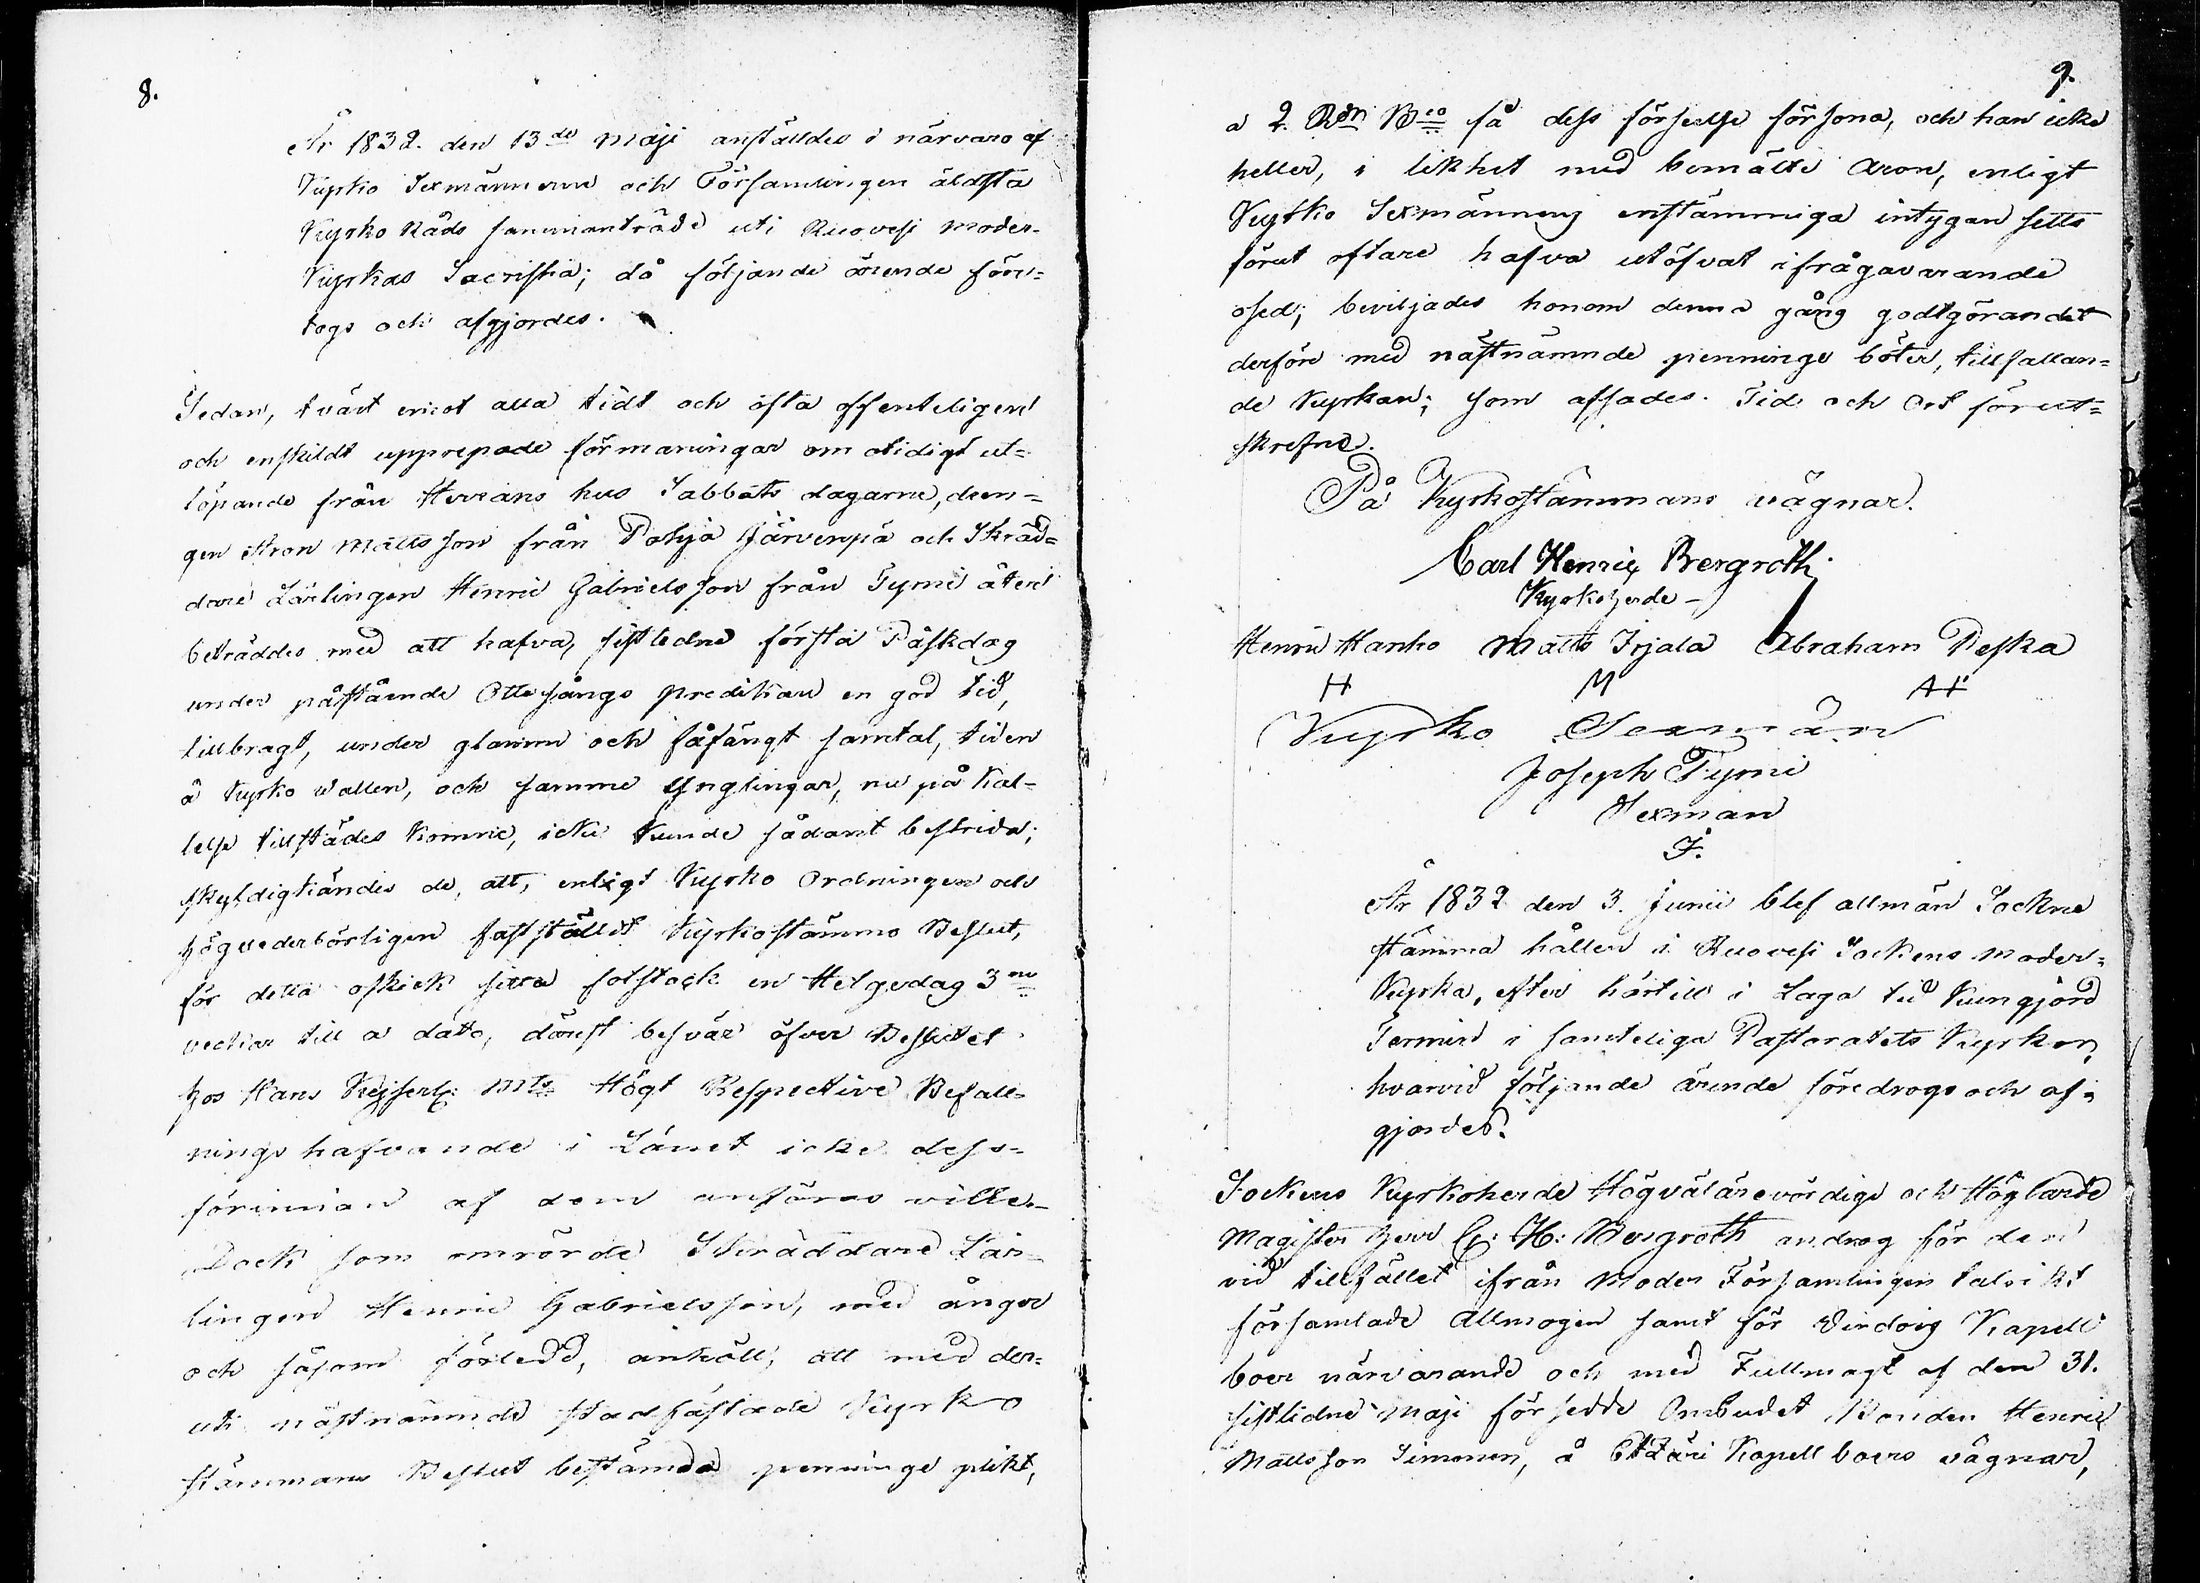 8.
År 1832. den 13de Maji anställdes i närvaro af
Kyrko Sexmännerne och Församlingen äldsta
Kyrko Råds sammanträde uti Ruovesi Moder-
Kyrkas Sacristia; då följande ärende före-
togs och afgjordes.
Sedan, tvärt emot alla tidt och ofta offenteligen
och enskildt upprepade förmaningar om otidigt ut-
löpande från Herrans hus Sabbats dagarne, dren-
gen Aron Mattsson från Pohja Järvenpä och Skräd-
dare Lärlingen Henric Gabrielsson från Tymi åter
beträddes med att hafva, sistledne första Påskdag
under påstående Ottesångs predikan en god tid,
tillbragt, under glamm och fåfängt samtal, tiden
å Kyrko wallen, och samme Ynglingar, nu på Kal-
lelse tillstädes Komne, icke Kunde sådant bestrida;
skyldigkändes de, att, enligt Kyrko Ordningen och
högvederbörligen fastställdt Kyrkostämmo Beslut,
för detta oskick sitta fotstock en Helgedag 3ne
veckor till a dato, därest besvär öfver Beslutet
hos Hans Kejserl: Mts Högt Respective Befall-
nings hafvande i Länet icke dess-
förinnan af dem anföras ville.
Dock som omrörde Skräddare Lär-
lingen Henric Gabrielsson, med ånger
och såsom förledd, anhöll, att med der-
uti nästnämnde stadfästade Kyrko
stämmans Beslut bestämda penninge plikt,
9.
a 2 Rdr Bco få dess förseelse försona, och han icke
heller, i likhet med bemälte Aron, enligt
Kyrko Sexmännens enstämmiga intygan setts
förut oftare hafva utöfvat ifrågavarande
osed; beviljades honom denna gång godtgörandet
derföre med nästnämnde penninge böter, tillfallan-
de Kyrkan; som afsades. Tid och Ort förut-
skrefne.
På Kyrkostämmans vägnar.
Carl Henric Bergroth
Kyrkoherde
Henric Hanho Matts Irjala Abraham Peska
H M AH
Kyrko Sexmän
Joseph Tymi
Sexman
J.
År 1832 den 3. Junii blef allmän Sockne
stämma hållen i Ruovesi Sockens Moder-
Kyrka, efter härtill i Laga tid Kungjord
Termin i samteliga Pastoratets Kyrkor,
hvarvid följande ärende föredrogs och af-
gjordes.
Sockens Kyrkoherde Högvälärevördige och Höglärde
Magister Herr C: H: Bergroth androg för den
vid tillfället ifrån Moder Församlingen talrikt
församlade Allmogen samt för Virdois Kapell
boer närvarande och med Fullmagt af den 31.
sistlidne Maji försedde Ombudet Bonden Henric
Mattsson Simonen, å Etzäri Kapell boers vägnar,